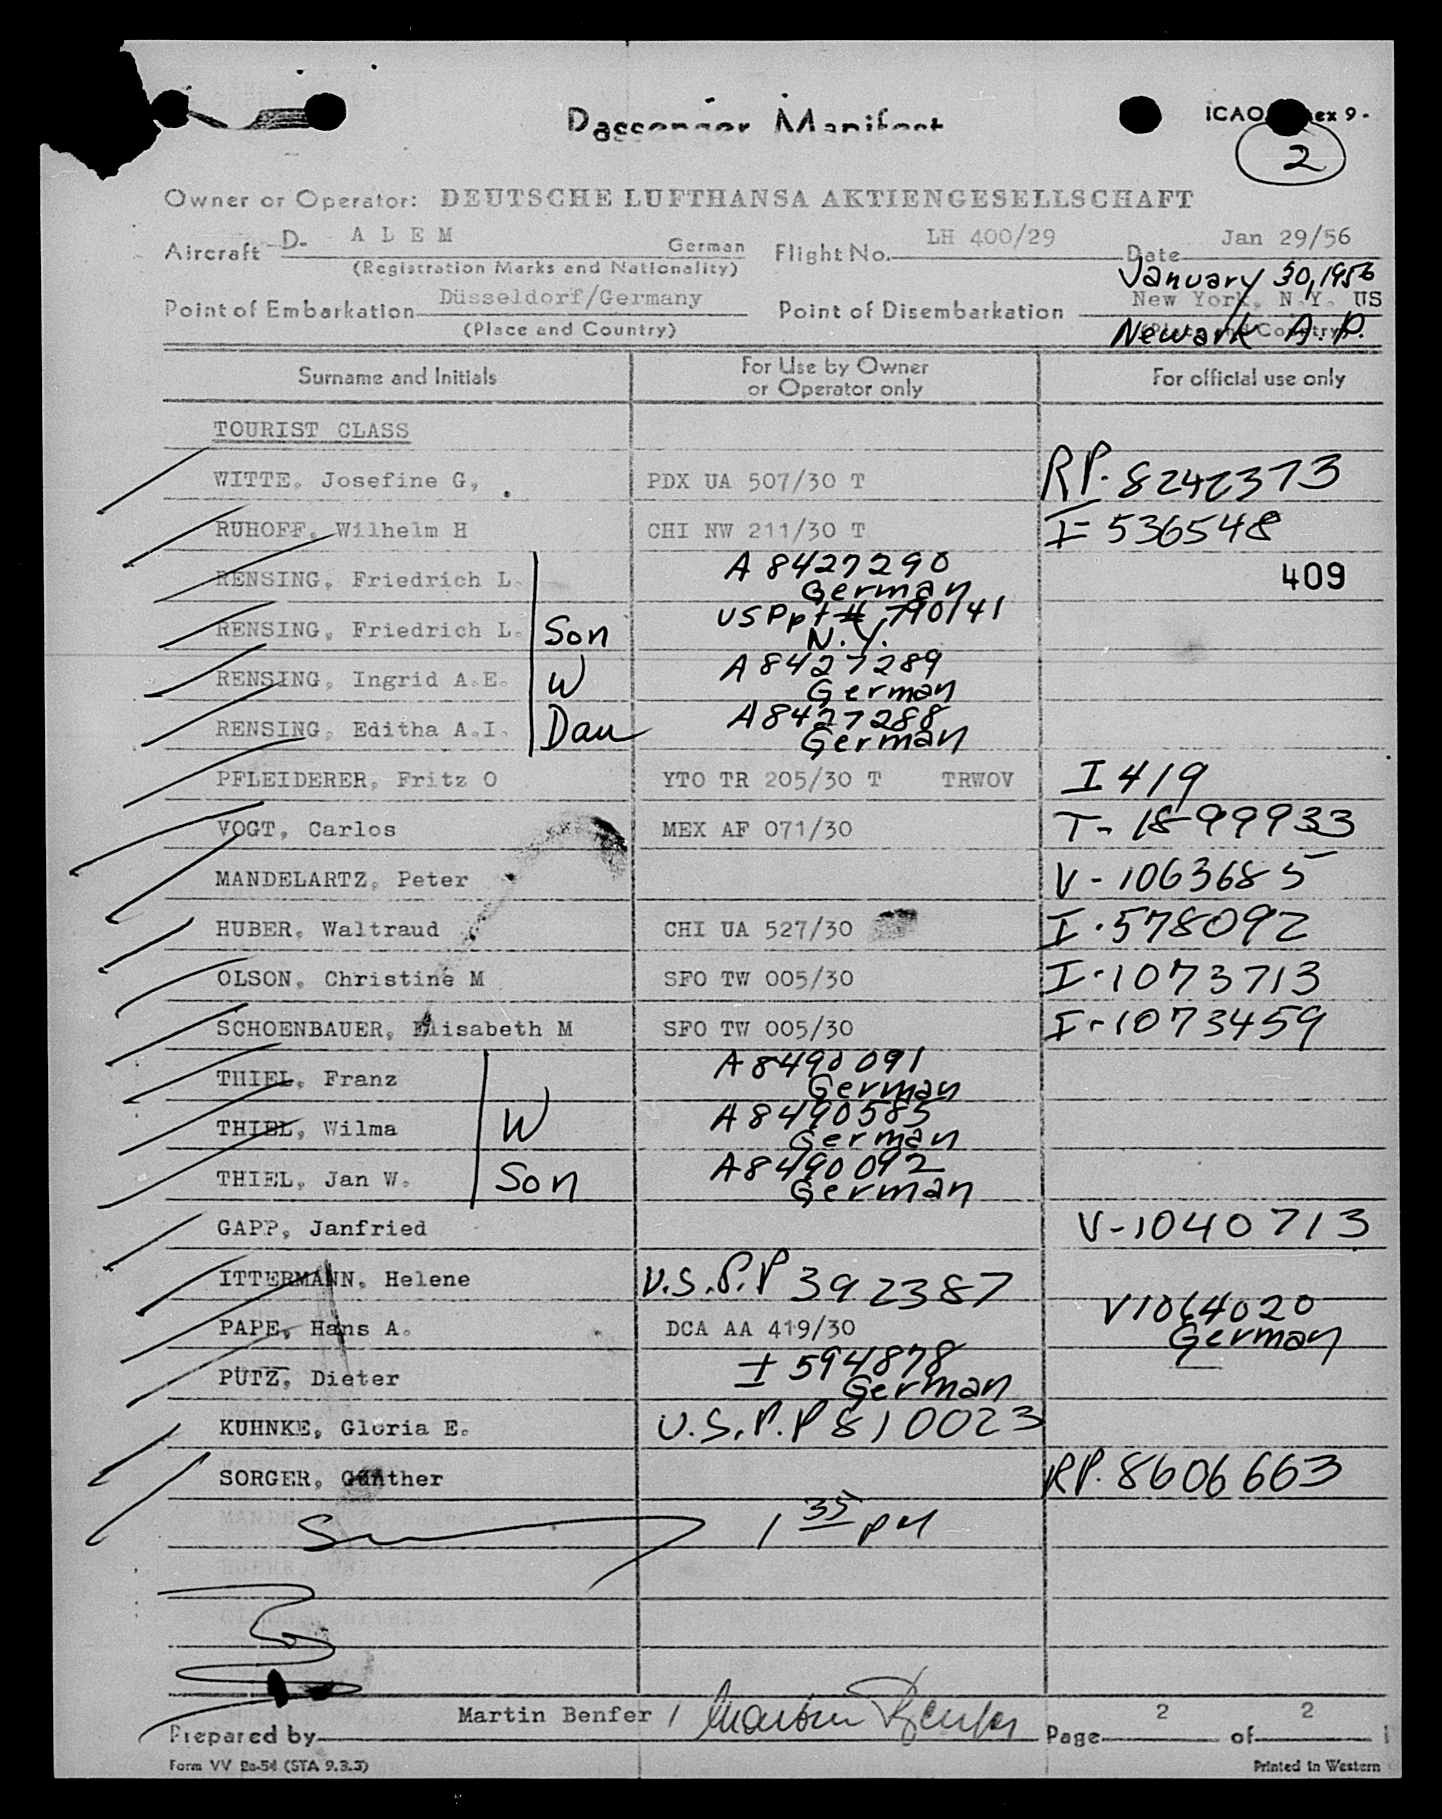 Passenger Manifest
ICAO Annex 9-
2
Owner or Operator: DEUTSCHE LUFTHANSA AKTIENGESELLSCHAFT
Aircraft D. ALEM German Flight No. LH 400/29 Date Jan 29/56
(Registration Marks and Nationality)
January 30, 1956
Point of Embarkation Düsseldorf/Germany Point of Disembarkation New York, N.Y. US
(Place and Country) (Place and Country)
Newark A.P.
Surname and Initials For Use by Owner or Operator only For official use only
TOURIST CLASS
WITTE, Josefine G, PDX UA 507/30 T RP. 8242373
RUHOFF, Wilhelm H CHI NW 211/30 T I- 536548
RENSING, Friedrich L. A 8427290 German 409
RENSING, Friedrich L. Son US Ppt # 790141 N.Y.
RENSING, Ingrid A.E. W A 8427289 German
RENSING, Editha A.I. Dau A8427288 German
PFLEIDERER, Fritz O YTO TR 205/30 T TRWOV I 419
VOGT, Carlos MEX AF 071/30 T- 1899933
MANDELARTZ, Peter V - 1063685
HUBER, Waltraud CHI UA 527/30 I. 578092
OLSON, Christine M SFO TW 005/30 I-1073713
SCHOENBAUER, Elisabeth M SFO TW 005/30 I-1073459
THIEL, Franz A 8490091 German
THIEL, Wilma W A 8490585 German
THIEL, Jan W. Son A8490092 German
GAPP, Janfried V-1040713
ITTERMANN, Helene U.S.P.P 392387
PAPE, Hans A. DCA AA 419/30 V1064020 German
PÜTZ, Dieter I 594878 German
KUHNKE, Gloria E. U.S.P.P 810023
SORGER, Günther RP. 8606663
1 35 PM
Prepared by Martin Benfer / Martin Benfer Page 2 of 2
Form VV 2a-54 (STA 9.3.3) Printed in Western